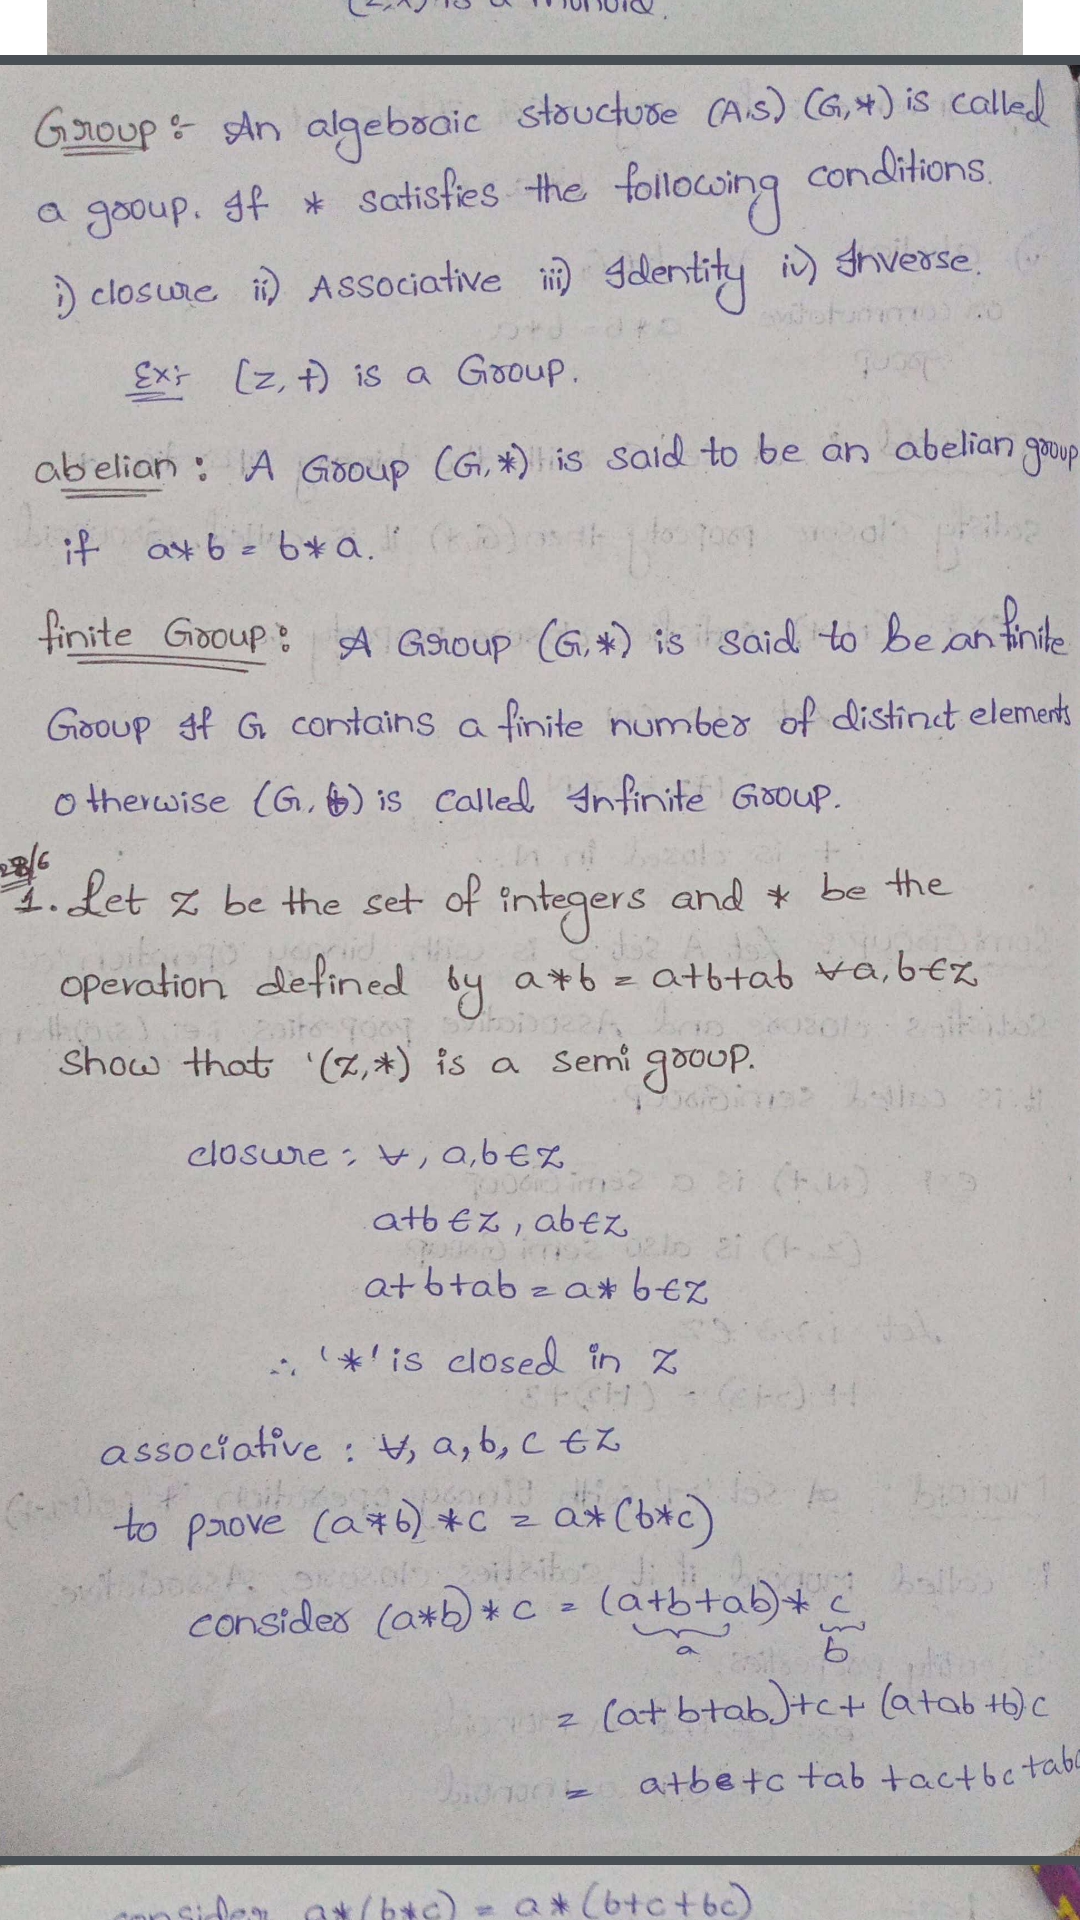 (Z,x) is a monoid.
Group :- An algebraic structure (A.S) (G,*) is called
a group. If * satisfies the following conditions.
i) closure ii) Associative iii) Identity iv) Inverse.
Ex:- (Z, +) is a Group.
abelian : A Group (G,*) is said to be an abelian group
if a*b = b*a.
finite Group : A Group (G,*) is said to be an finite
Group If G contains a finite number of distinct elements
otherwise (G, ) is called Infinite Group.
28/6
1. Let Z be the set of integers and * be the
operation defined by a*b = a+b+ab ∀a,b∈Z
show that '(Z,*) is a semi group.
closure : ∀, a,b∈Z
a+b∈Z, ab∈Z
a+b+ab = a*b∈Z
∴ '*' is closed in Z
associative : ∀, a,b,c ∈Z
to prove (a*b)*c = a*(b*c)
consider (a*b)*c = (a+b+ab)*c
a b
= (a+b+ab)+c+(a+ab+b)c
= a+b+c+ab+ac+bc+abc
consider a*(b*c) = a*(b+c+bc)